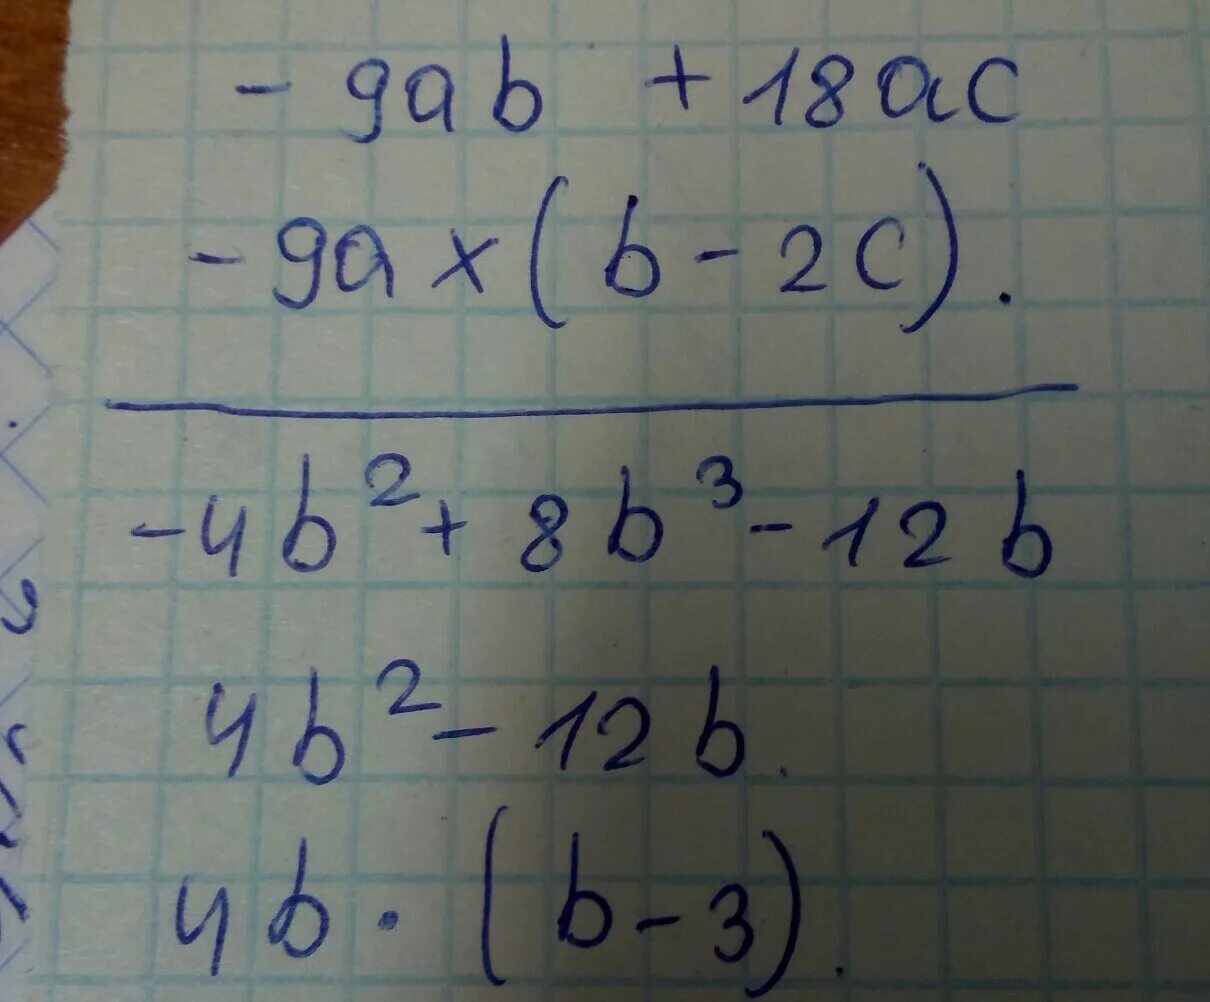 - 9ab + 18ac
- 9a × (b - 2c).
-4b² + 8b³ - 12b
4b² - 12b.
4b · (b - 3).